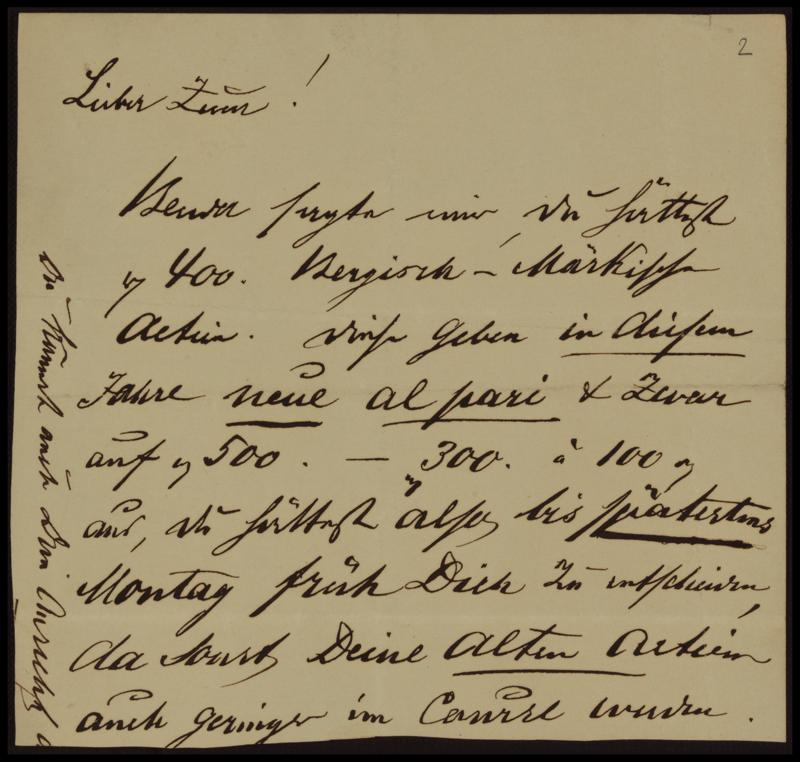 2
Lieber
Benda sagte mir, Du hättest
400. Bergisch-Märkische
Actien. Diese geben in diesem
Jahre neue al pari & zwar
auf 500. — 300. à 100
aus, Du hättest also bis spätestens
Montag früh Dich zu entscheiden,
da sonst Deine alten Actien
auch geringer im Course werden.
Du kannst auch Dein